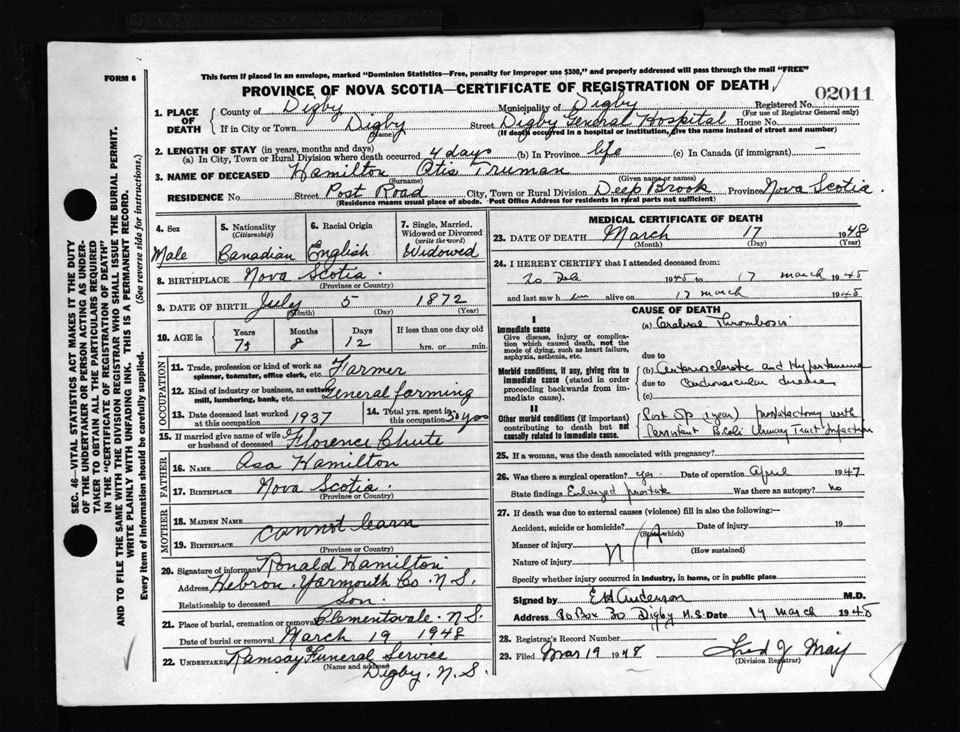 FORM 6
This form if placed in an envelope, marked "Dominion Statistics—Free, penalty for improper use $300," and properly addressed will pass through the mail "FREE"
PROVINCE OF NOVA SCOTIA—CERTIFICATE OF REGISTRATION OF DEATH
02011
1. PLACE OF DEATH
County of Digby Municipality of Digby Registered No.
(For use of Registrar General only)
If in City or Town Digby Street Digby General Hospital House No.
(Name) (If death occurred in a hospital or institution, give the name instead of street and number)
2. LENGTH OF STAY (in years, months and days)
(a) In City, Town or Rural Division where death occurred 4 days (b) In Province life (c) In Canada (if immigrant) —
3. NAME OF DECEASED Hamilton Otis Truman
(Surname) (Given name or names)
RESIDENCE No. Street Post Road City, Town or Rural Division Deep Brook Province Nova Scotia.
(Residence means usual place of abode. Post Office Address for residents in rural parts not sufficient)
4. Sex
Male
5. Nationality (Citizenship)
Canadian
6. Racial Origin
English
7. Single, Married, Widowed or Divorced (write the word)
Widowed
8. BIRTHPLACE Nova Scotia.
(Province or Country)
9. DATE OF BIRTH July 5 1872
(Month) (Day) (Year)
10. AGE in
Years Months Days If less than one day old
75 8 12 hrs. or min.
OCCUPATION
11. Trade, profession or kind of work as spinner, teamster, office clerk, etc. Farmer
12. Kind of industry or business, as cotton mill, lumbering, bank, etc. General farming
13. Date deceased last worked at this occupation 1937
14. Total yrs. spent in this occupation 50 yrs
15. If married give name of wife or husband of deceased Florence Chute
FATHER
16. NAME Asa Hamilton
17. BIRTHPLACE Nova Scotia.
(Province or Country)
MOTHER
18. MAIDEN NAME
cannot learn
19. BIRTHPLACE
(Province or Country)
20. Signature of informant Ronald Hamilton
Address Hebron. Yarmouth Co. N.S.
Relationship to deceased Son.
21. Place of burial, cremation or removal Clementsvale. N.S.
Date of burial or removal March 19 1948
22. UNDERTAKER Ramsay Funeral Service
(Name and address)
Digby. N.S.
MEDICAL CERTIFICATE OF DEATH
23. DATE OF DEATH March 17 1948
(Month) (Day) (Year)
24. I HEREBY CERTIFY that I attended deceased from:
20 Feb 1948 to 17 March 1948
and last saw him alive on 17 March 1948
CAUSE OF DEATH
I
Immediate cause
Give disease, injury or complication which caused death, not the mode of dying, such as heart failure, asphyxia, asthenia, etc.
(a) Cerebral Thrombosis
due to
Morbid conditions, if any, giving rise to immediate cause (stated in order proceeding backwards from immediate cause).
(b) Arteriosclerotic and Hypertensive
due to Cardiovascular disease
(c)
II
Other morbid conditions (if important) contributing to death but not causally related to immediate cause.
Post Op (1 year) prostatectomy with
Persistent B. coli Urinary Tract Infection
25. If a woman, was the death associated with pregnancy?
26. Was there a surgical operation? yes. Date of operation April 1947
State findings Enlarged prostate Was there an autopsy? no
27. If death was due to external causes (violence) fill in also the following:—
Accident, suicide or homicide? Date of injury 19
(State which)
Manner of injury N/A
(How sustained)
Nature of injury
Specify whether injury occurred in industry, in home, or in public place
Signed by E H Anderson M.D.
Address PO Box 30 Digby N.S. Date 17 March 1948
28. Registrar's Record Number
29. Filed Mar 19 1948 Fred J May
(Division Registrar)
SEC. 46—VITAL STATISTICS ACT MAKES IT THE DUTY
OF THE UNDERTAKER OR PERSON ACTING AS UNDER-
TAKER TO OBTAIN ALL THE PARTICULARS REQUIRED
IN THE "CERTIFICATE OF REGISTRATION OF DEATH"
AND TO FILE THE SAME WITH THE DIVISION REGISTRAR WHO SHALL ISSUE THE BURIAL PERMIT.
WRITE PLAINLY WITH UNFADING INK. THIS IS A PERMANENT RECORD.
Every item of information should be carefully supplied. (See reverse side for instructions.)